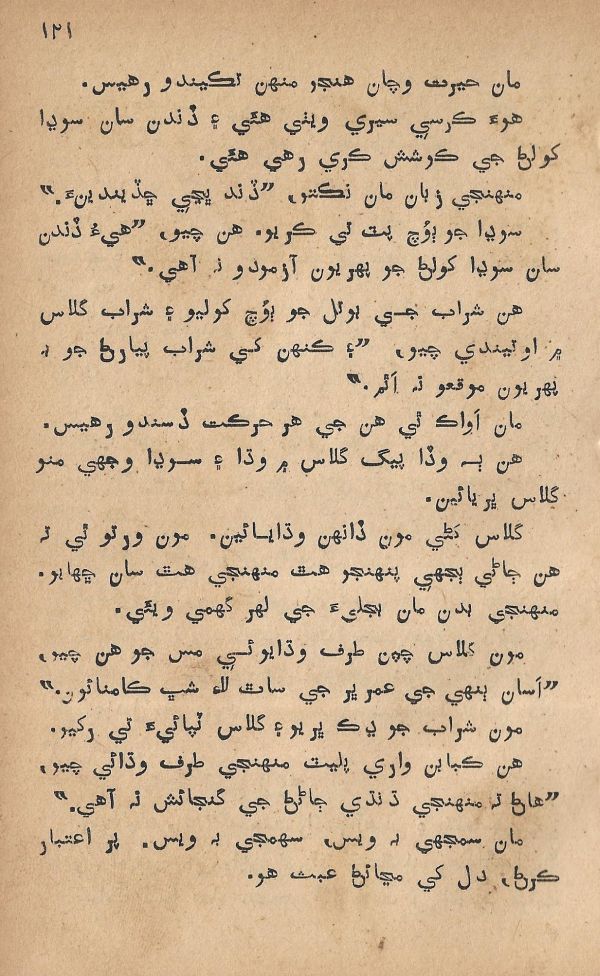 ۱۲۱
مان حيرت وچان هنجو منهن تڪيندو رهيس.
هوءَ ڪرسي سيري ويٺي هئي ۽ ڏندن سان سوڊا
کولڻ جي ڪوشش ڪري رهي هئي.
منهنجي زبان مان نڪتو، ”ڏند ڀڃي ڇڏيندينءَ.“
سوڊا جو ٻوُچ پٽ تي ڪريو. هن چيو، ”هيءُ ڏندن
سان سوڊا کولڻ جو پهريون آزمودو نہ آهي.“
هن شراب جي بوتل جو ٻوُچ کوليو ۽ شراب گلاس
۾ اوتيندي چيو، ”۽ ڪنهن کي شراب پيارڻ جو بہ
پهريون موقعو نہ اٿم.“
مان اَواڪ ٿي هن جي هر حرڪت ڏسندو رهيس.
هن ٻہ وڏا پيگ گلاس ۾ وڌا ۽ سوڊا وجهي منو
گلاس ڀريائين.
گلاس کڻي مون ڏانهن وڌايائين. مون ورتو ٿي تہ
هن ڄاڻي ٻجهي پنهنجو هٿ منهنجي هٿ سان ڇهايو.
منهنجي بدن مان بجليءَ جي لهر گهمي ويئي.
مون گلاس چپن طرف وڌايو ئي مس جو هن چيو،
”اَسان ٻنهي جي عمر ڀر جي ساٿ لاءِ شڀ ڪامنائون.“
مون شراب جو ڍڪ ڀريو ۽ گلاس ٽپائيءَ تي رکيو.
هن ڪبابن واري پليٽ منهنجي طرف وڌائي چيو،
”هاڻ تہ منهنجي ڌنڌي ڄاڻڻ جي گنجائش نہ آهي.“
مان سمجهي بہ ويس، سهمجي بہ ويس. پر اعتبار
ڪرڻ، دل کي مڃائڻ عبث هو.